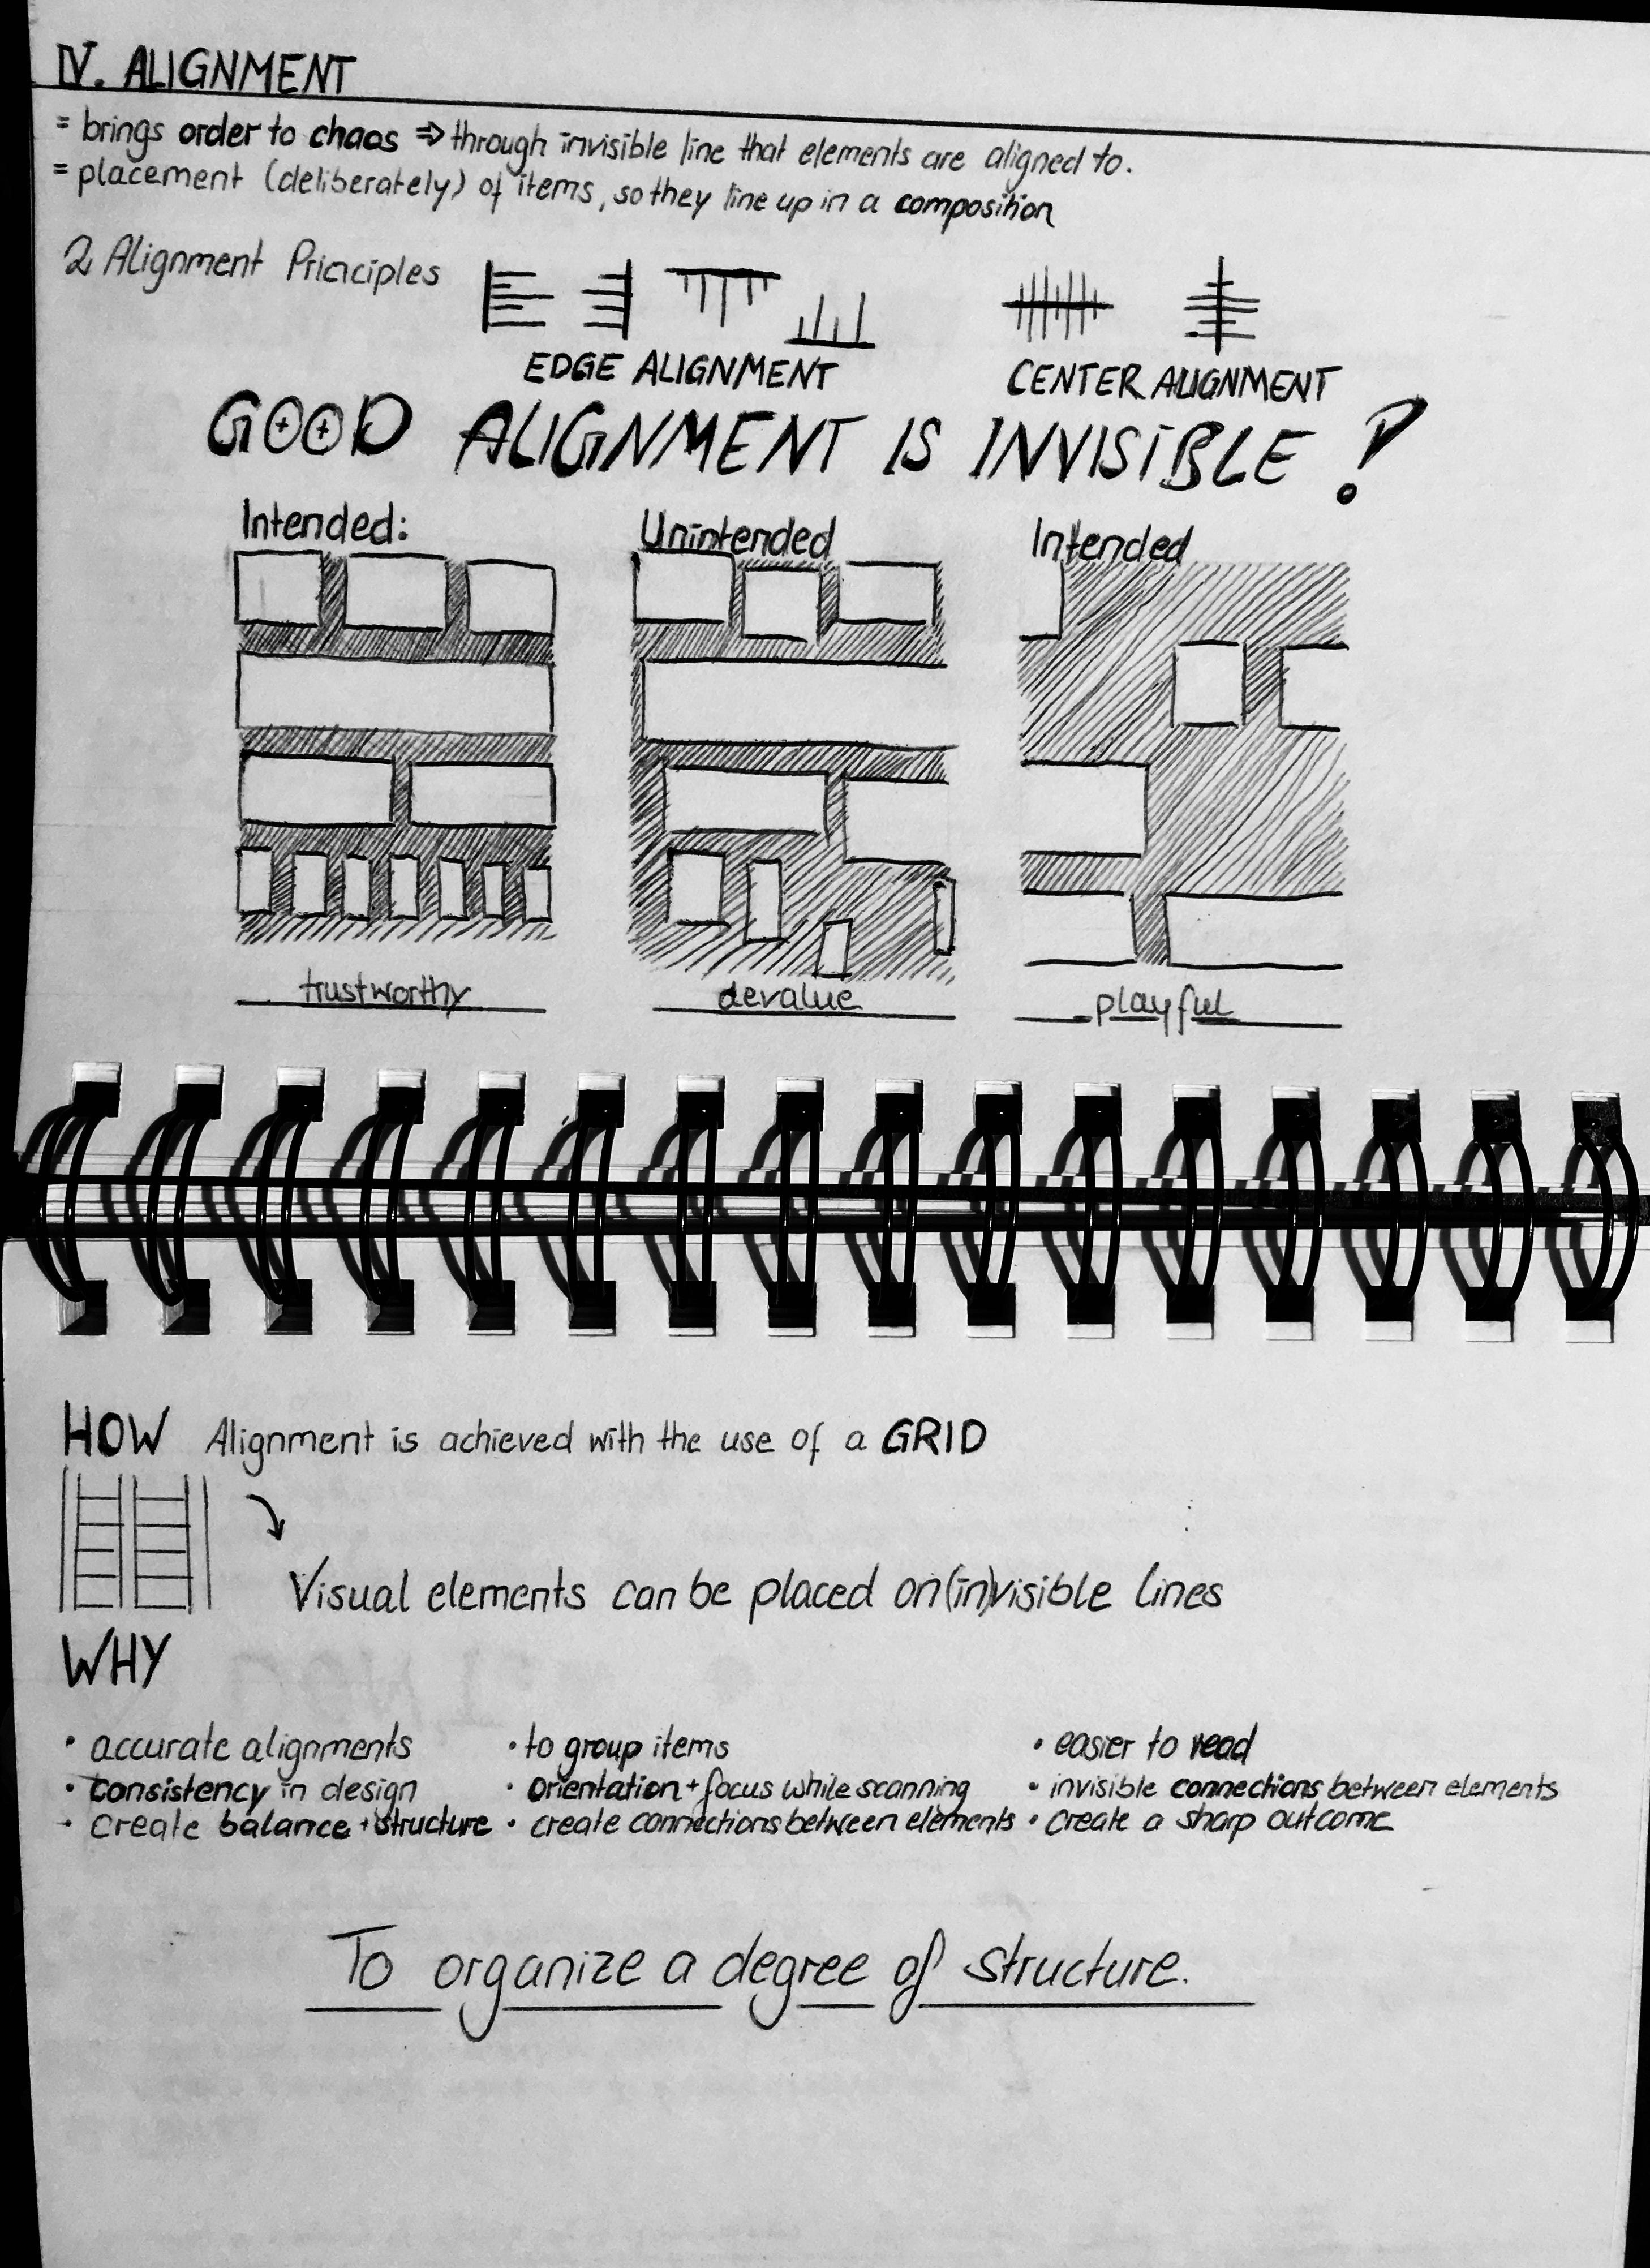 IV. ALIGNMENT
= brings order to chaos ⇒ through invisible line that elements are aligned to.
= placement (deliberately) of items, so they line up in a composition
2 Alignment Principles
EDGE ALIGNMENT
CENTER ALIGNMENT
GOOD ALIGNMENT IS INVISIBLE!
Intended:
Unintended
Intended
trustworthy
devalue
playful
HOW Alignment is achieved with the use of a GRID
Visual elements can be placed on (in)visible lines
WHY
• accurate alignments
• consistency in design
• create balance + structure
• to group items
• orientation + focus while scanning
• create connections between elements
• easier to read
• invisible connections between elements
• create a sharp outcome
To organize a degree of structure.